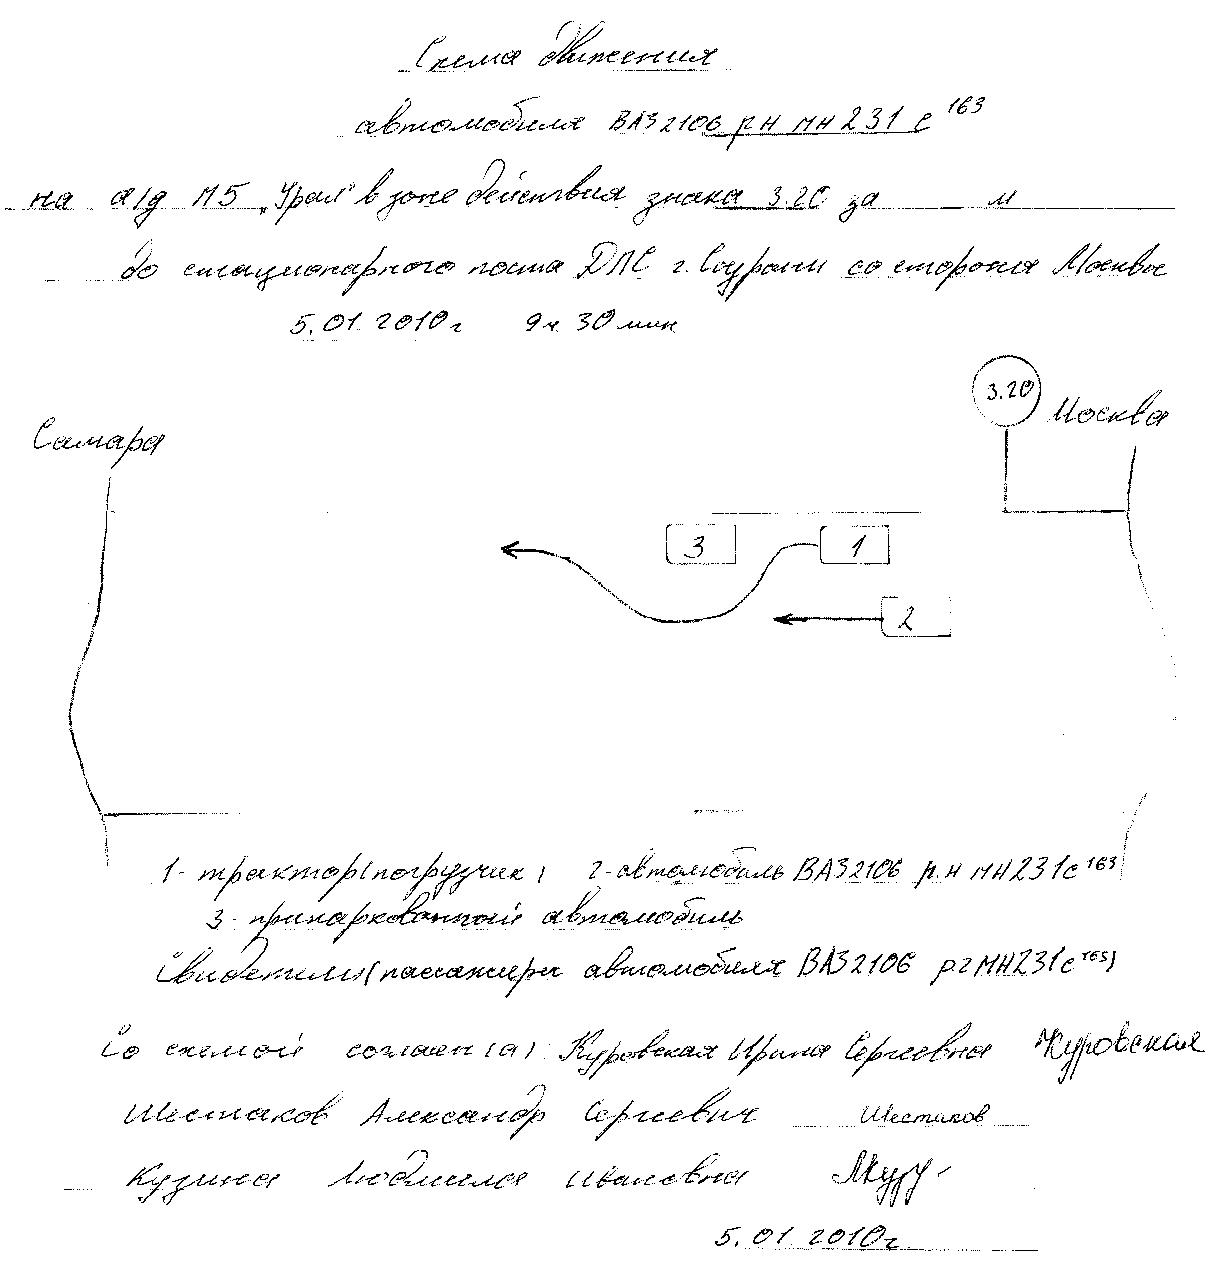 Схема движения
автомобиля ВАЗ 2106 рн мн 231 с 163
на а/д М5 „Урал" в зоне действия знака 3.20 за м
до стационарного поста ДПС г. Сызрани со стороны Москвы
5.01.2010г 9ч 30 мин
3.20
Москва
Самара
3 1
2
1- трактор(погрузчик) 2-автомобиль ВАЗ 2106 рн мн 231с 163
3- припаркованный автомобиль
Свидетели(пассажиры автомобиля ВАЗ 2106 рг МН231с 163)
Со схемой согласен(а): Куровская Ирина Сергеевна Куровская
Шестаков Александр Сергеевич Шестаков
Кузина Людмила Ивановна
5.01.2010г